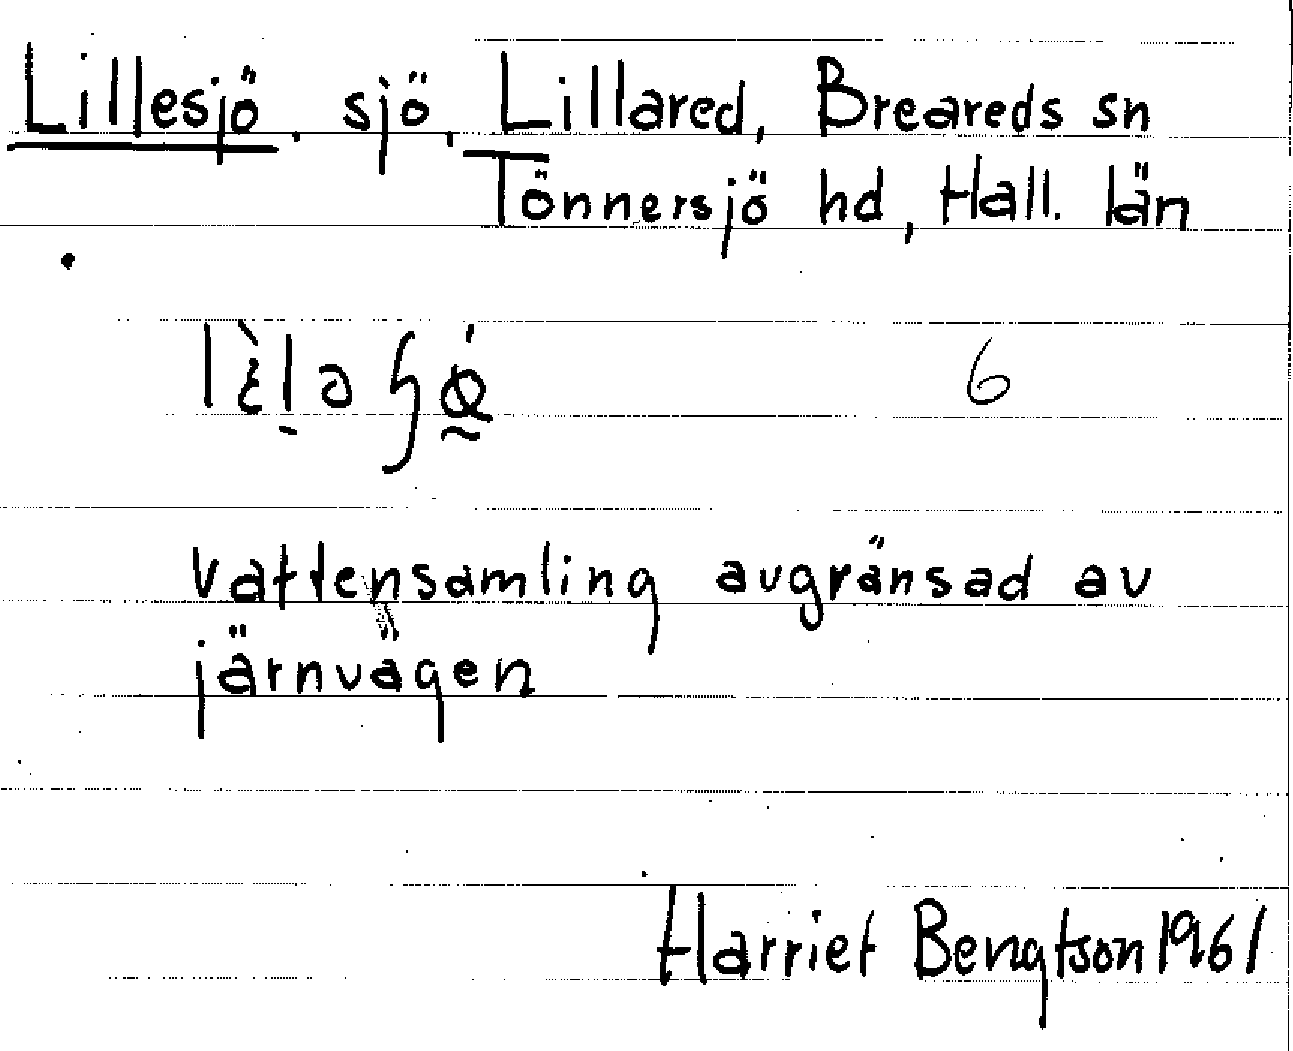 Lillesjö. sjö. Lillared, Breareds sn
Tönnersjö hd, Hall. län
6
Vattensamling avgränsad av
järnvägen
Harriet Bengtson 1961